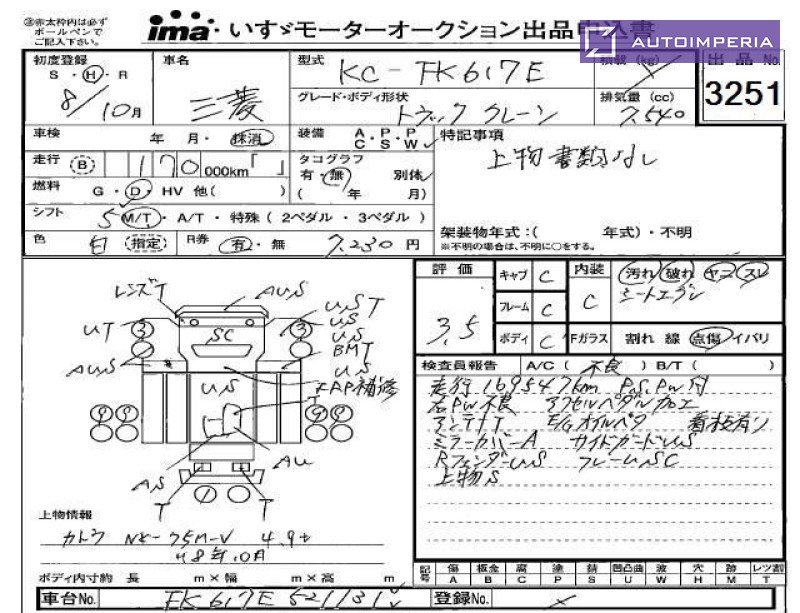 ※赤太枠内は必ず
ボールペンで
ご記入下さい。
ima・いすゞモーターオークション出品申込書
AUTOIMPERIA
出品No.
3251
初度登録
S・H・R
8/10月
車名
三菱
型式
KC-FK617E
積載(kg)
グレード・ボディ形状
トラック クレーン
排気量(cc)
7,540
車検 年 月・抹消
装備 A・P・P
C・S・W
特記事項
上物書類なし
走行 B 170 000km「 」
タコグラフ
有・無 別体
( 年 月)
燃料 G・D・HV 他( )
シフト 5 M/T・A/T・特殊(2ペダル・3ペダル)
色 白 指定 R券 有・無 7,230円
架装物年式:( 年式)・不明
※不明の場合は、不明に○をする。
評価
3,5
キャブ C
フレーム C
ボディ C
内装 C
汚れ 破れ ヤニ スレ
シートエグレ
Fガラス 割れ 線 点傷 イバリ
検査員報告 A/C( 不良 )B/T( )
走行169547km P.S.PW付
右PW不良 アクセルペダル加工
アンテナT E/Gオイルベタ 看板有り
ミラーカバーA サイドガードUS
RフェンダーU,S フレームSC
上物S
レンズT
AUS
UST
US
US
BMT
UT
3
SC
3
AUS
US
RAP補修
T
AU
AS
T
T
上物情報
カトウ NK-75M-V 4.9t
48年10月
ボディ内寸約 長 m×幅 m×高 m
記号
傷 板金 腐 塗 錆 凹凸曲 波 穴 跡 レツ割
A B C P S U W H M T
車台No. FK617E 521131
登録No.